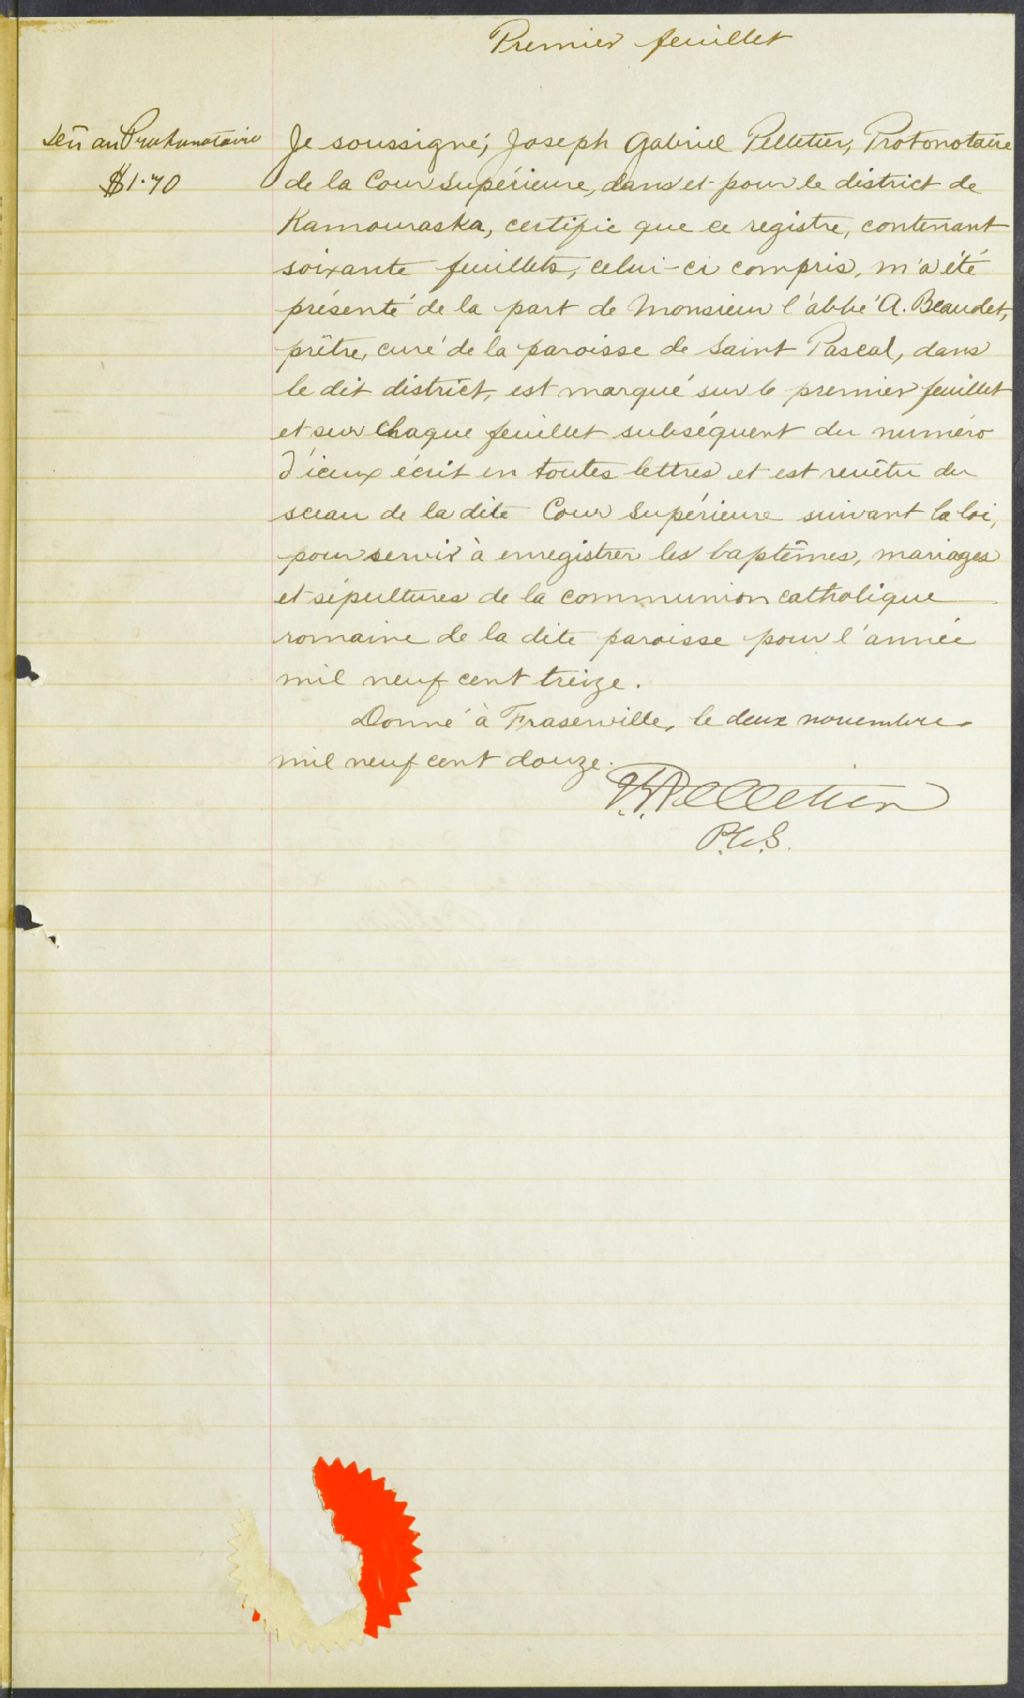 Premier feuillet
Dû au Protonotaire
$1.70
Je soussigné, Joseph Gabriel Pelletier, Protonotaire
de la Cour Supérieure, dans et pour le district de
Kamouraska, certifie que ce registre, contenant
soixante feuillets, celui-ci compris, m'a été
présenté de la part de Monsieur l'abbé A. Beaudet,
prêtre, curé de la paroisse de Saint Pascal, dans
le dit district, est marqué sur le premier feuillet
et sur chaque feuillet subséquent du numéro
d'iceux écrit en toutes lettres et est revêtu du
sceau de la dite Cour Supérieure suivant la loi,
pour servir à enregistrer les baptêmes, mariages
et sépultures de la communion catholique
romaine de la dite paroisse pour l'année
mil neuf cent treize.
Donné à Fraserville, le deux novembre
mil neuf cent douze.
Pelletier
P.C.S.